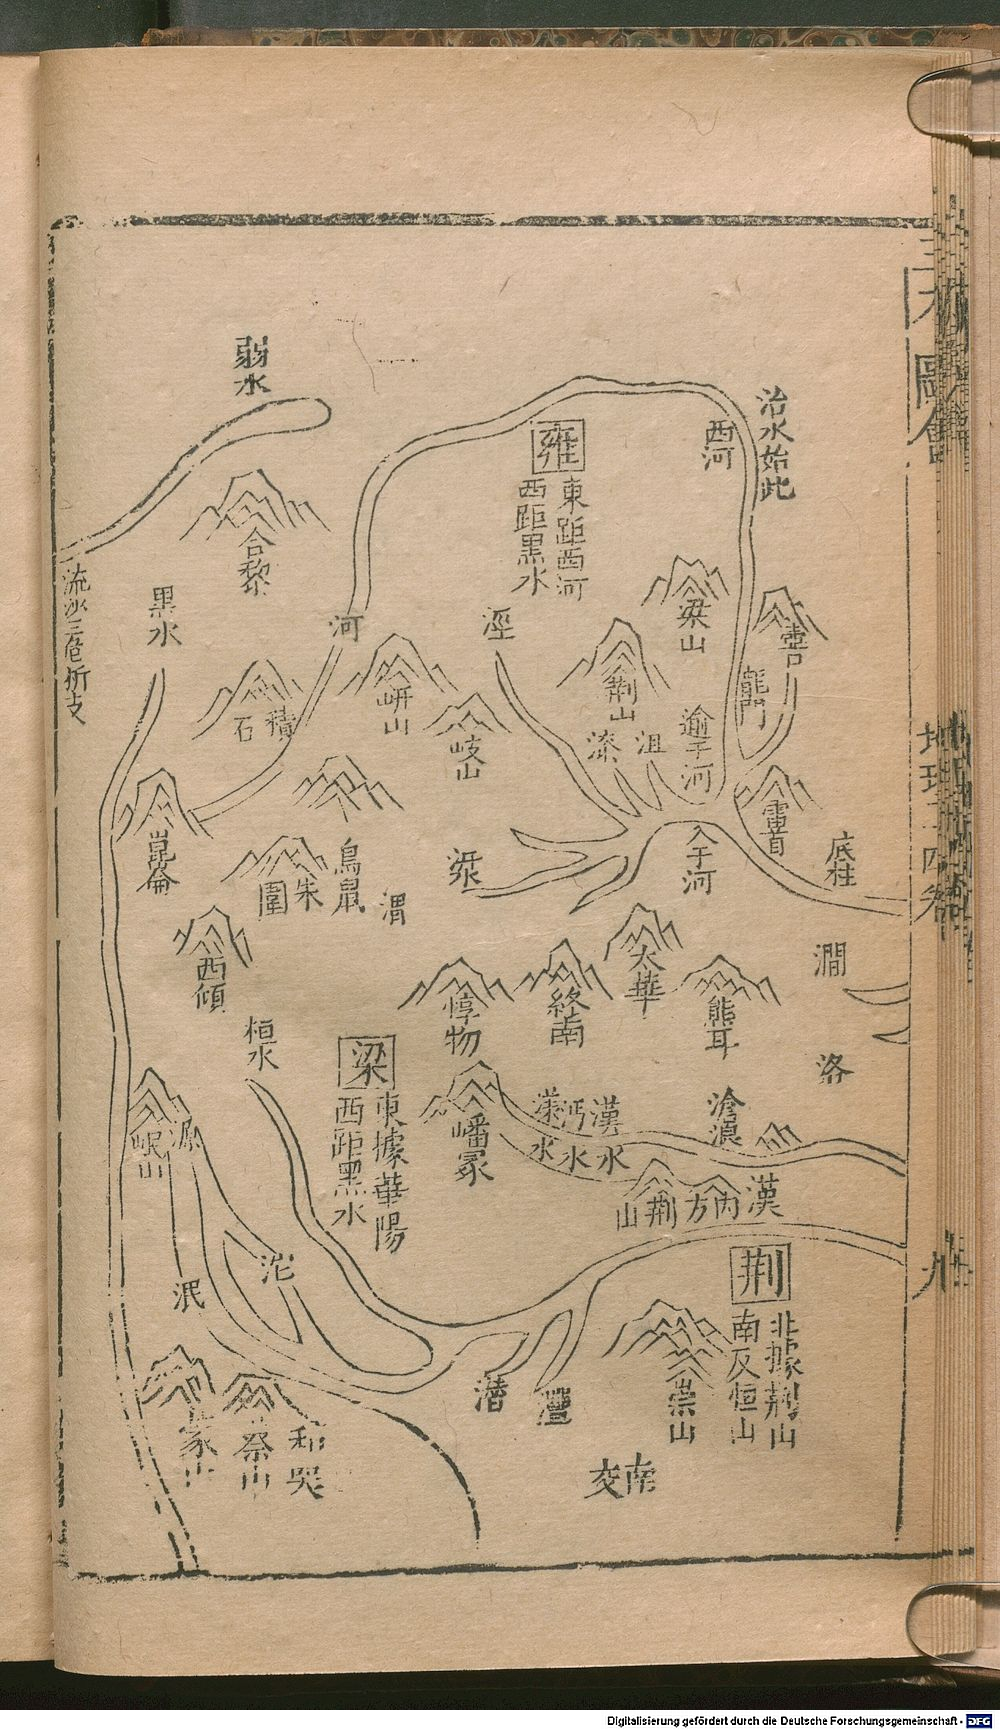 弱水
合黎
黑水
河
積石
崑崙
岍山
岐山
鳥鼠
朱圉
渭
西傾
桓水
雍
東距西河
西距黑水
西河
治水始此
涇
梁山
荆山
漆
沮
逾于河
龍門
壺口
雷首
底柱
入于河
太華
終南
惇物
熊耳
澗
洛
梁
東據華陽
西距黑水
嶓冢
漾水
沔水
漢水
滄浪
漢
内方
荆山
岷山
源
沱
蒙山
祭山
潛
灃
荆
北據荆山
南及恒山
崇山
南交
Digitalisierung gefördert durch die Deutsche Forschungsgemeinschaft - DFG